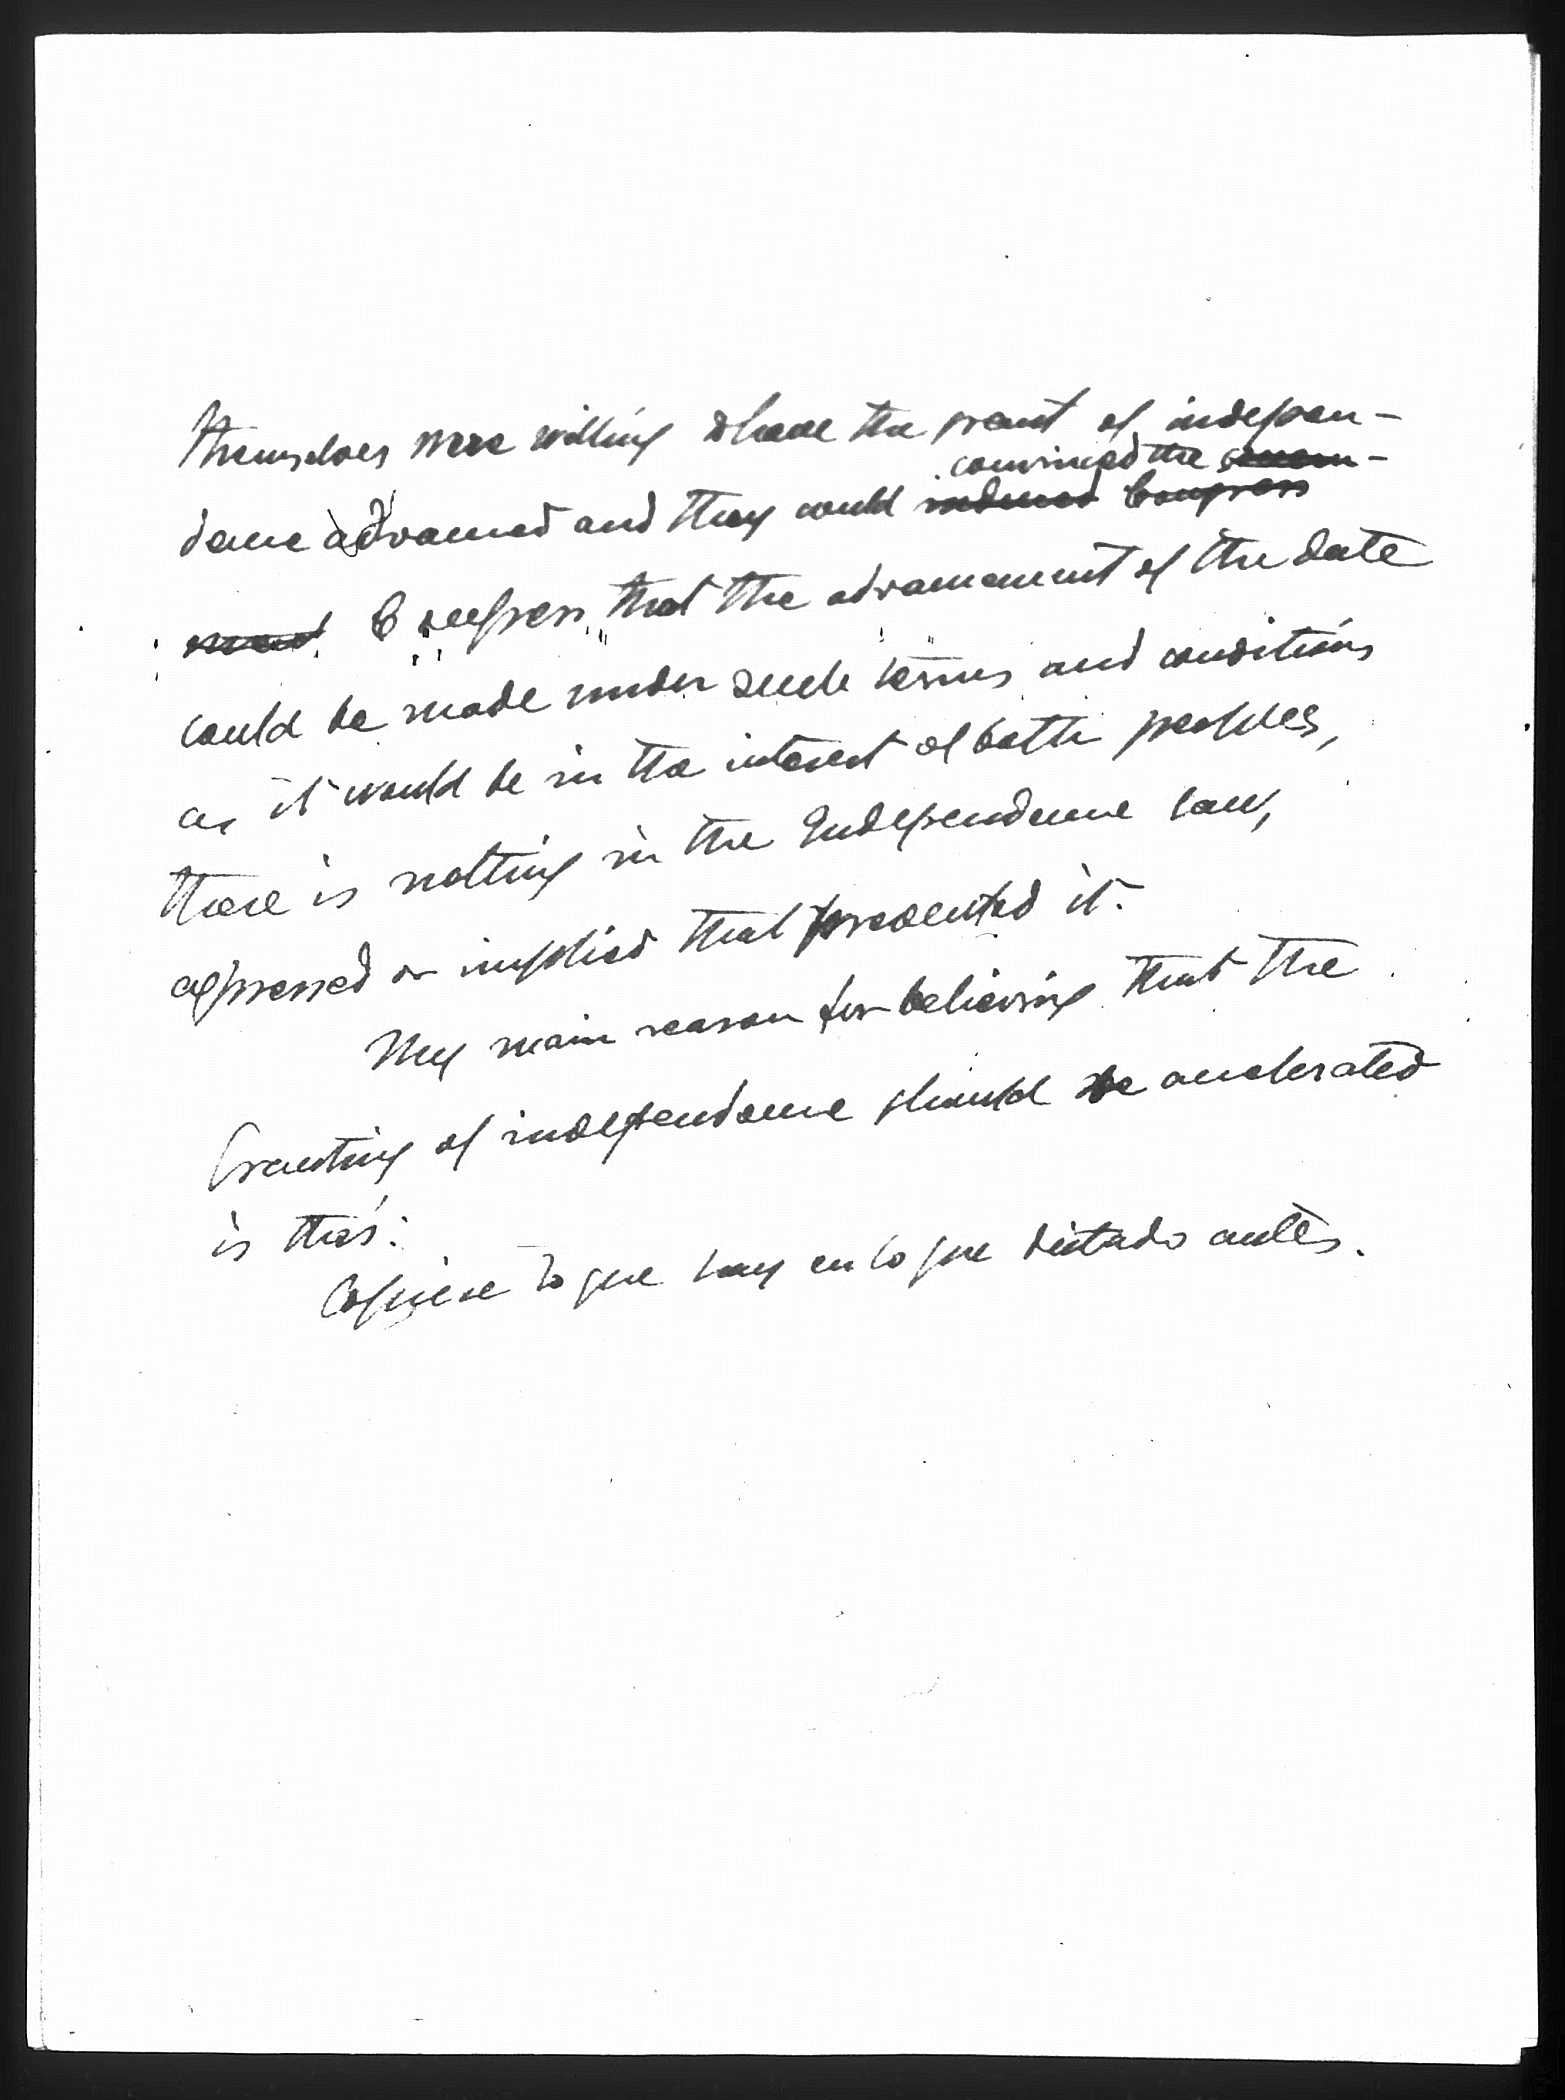 themselves were willing to have the grant of indepen-
convinced the
dence advanced and they could induced Congress
Congress that the advancement of the date
could be made under such terms and conditions
as it would be in the interest of both peoples,
there is nothing in the Independence law,
expressed or implied that prevented it.
My main reason for believing that the
Granting of independence should be accelerated
is this:
Copiese lo que hay en lo que dictado antes.